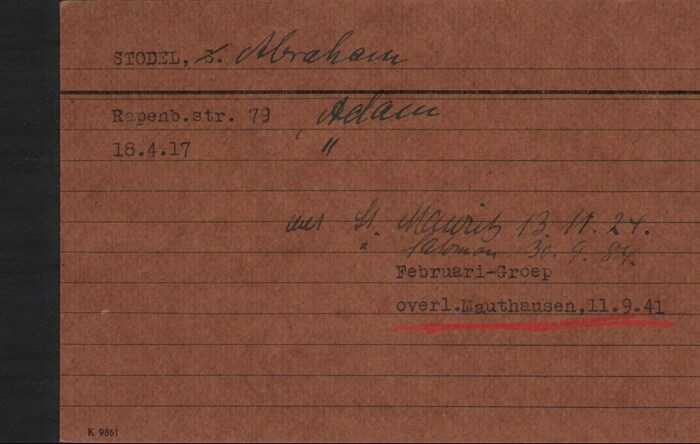 STODEL, Abraham
Rapenb.str. 79 Adam
18.4.17 "
St. Mauritz 13.11.24.
" Salomon 30.9.
Februari-Groep
overl.Mauthausen,11.9.41
K 9861